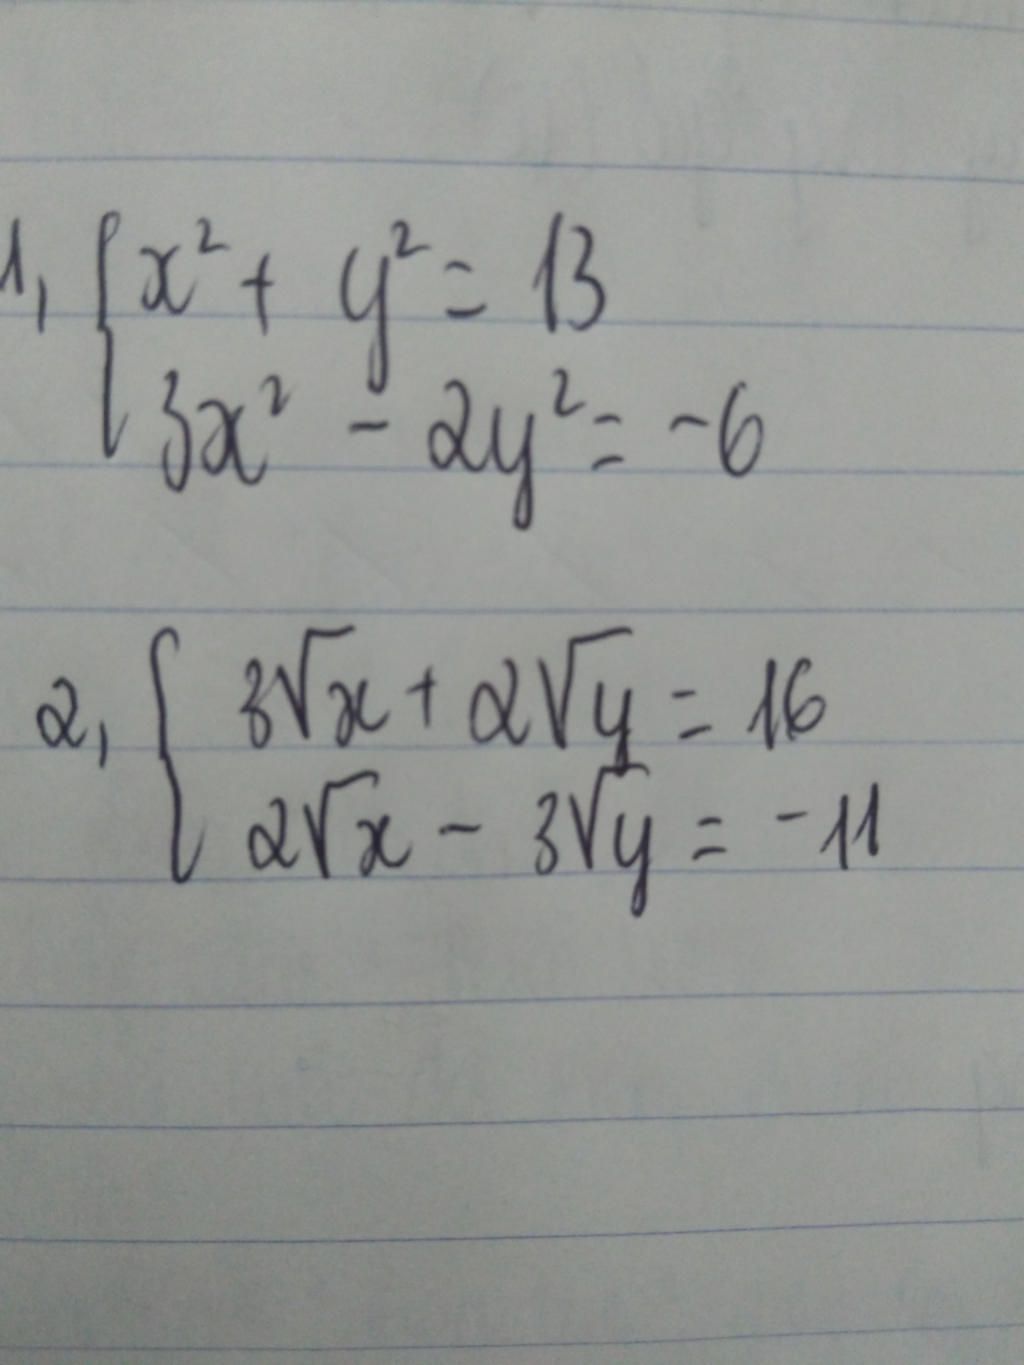 1, { x² + y² = 13
3x² - 2y² = -6
2, { 3√x + 2√y = 16
2√x - 3√y = -11